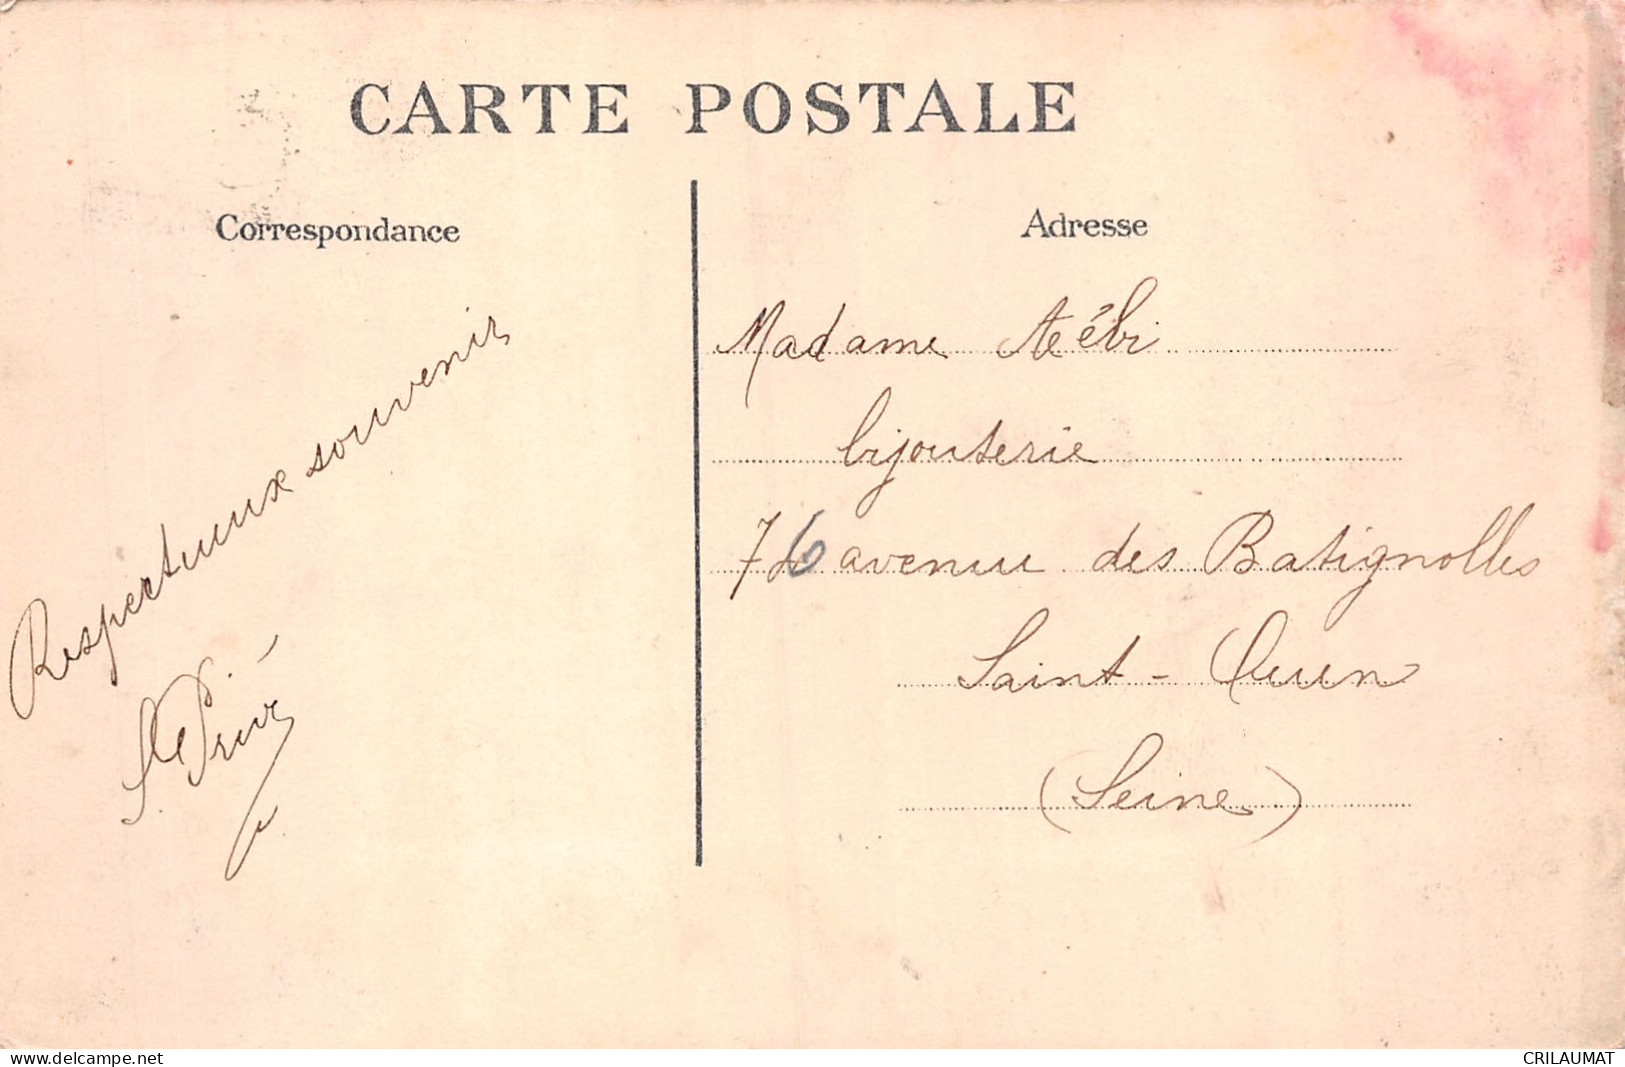 CARTE POSTALE
Correspondance
Respectueux souvenir
Privé
Adresse
Madame Aébi
bijouterie
76 avenue des Batignolles
Saint-Ouen
(Seine)
www.delcampe.net
CRILAUMAT